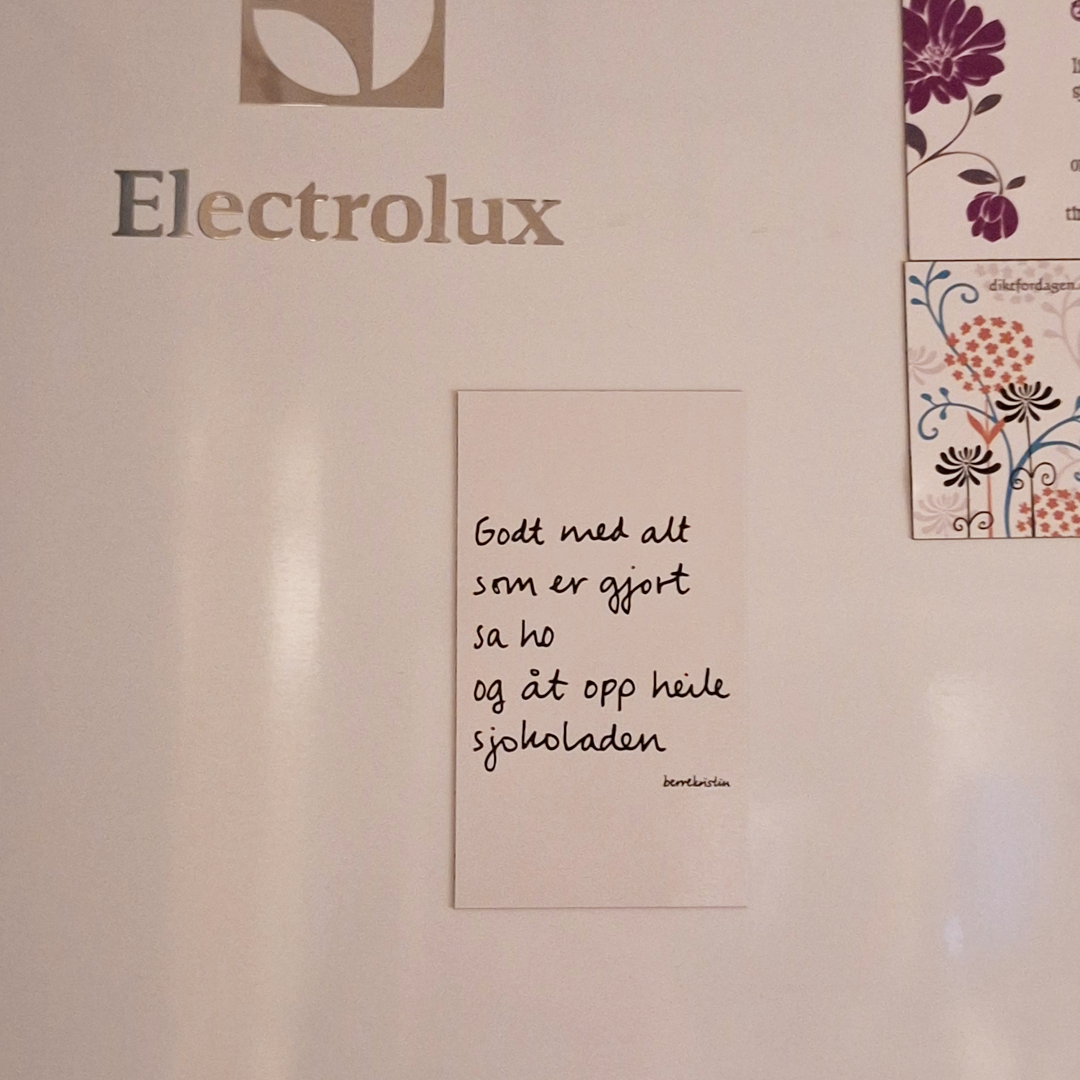 Electrolux
dikefordagen.
Godt med alt
som er gjort
sa ho
og åt opp heile
sjokoladen
berrekristin